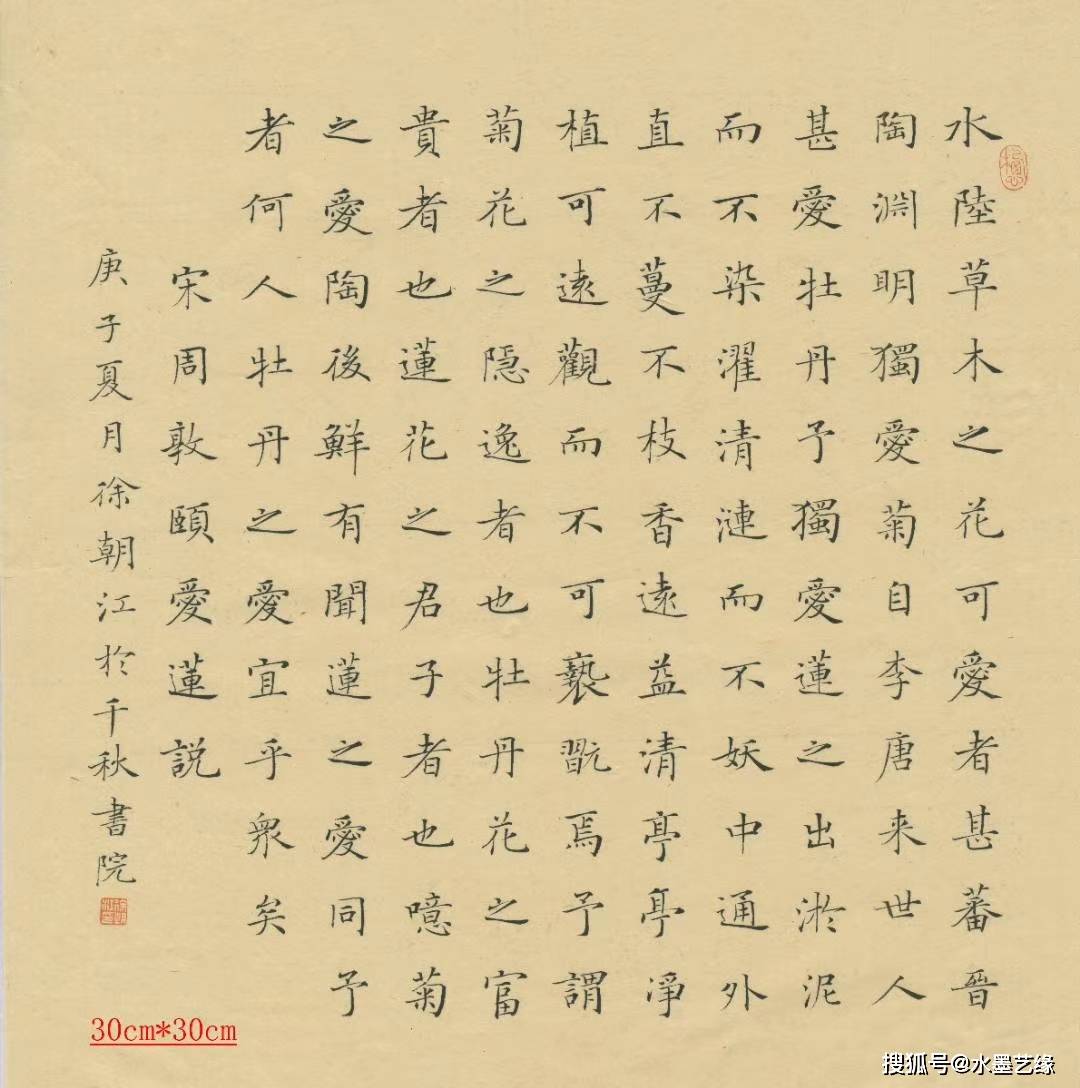 水陸草木之花可愛者甚蕃晉
陶淵明獨愛菊自李唐来世人
甚愛牡丹予獨愛蓮之出淤泥
而不染濯清漣而不妖中通外
直不蔓不枝香遠益清亭亭凈
植可遠觀而不可褻翫焉予謂
菊花之隠逸者也牡丹花之富
貴者也蓮花之君子者也噫菊
之愛陶後鮮有聞蓮之愛同予
者何人牡丹之愛宜乎衆矣
宋周敦頤愛蓮説
庚子夏月徐朝江於千秋書院
30cm*30cm
搜狐号@水墨艺缘